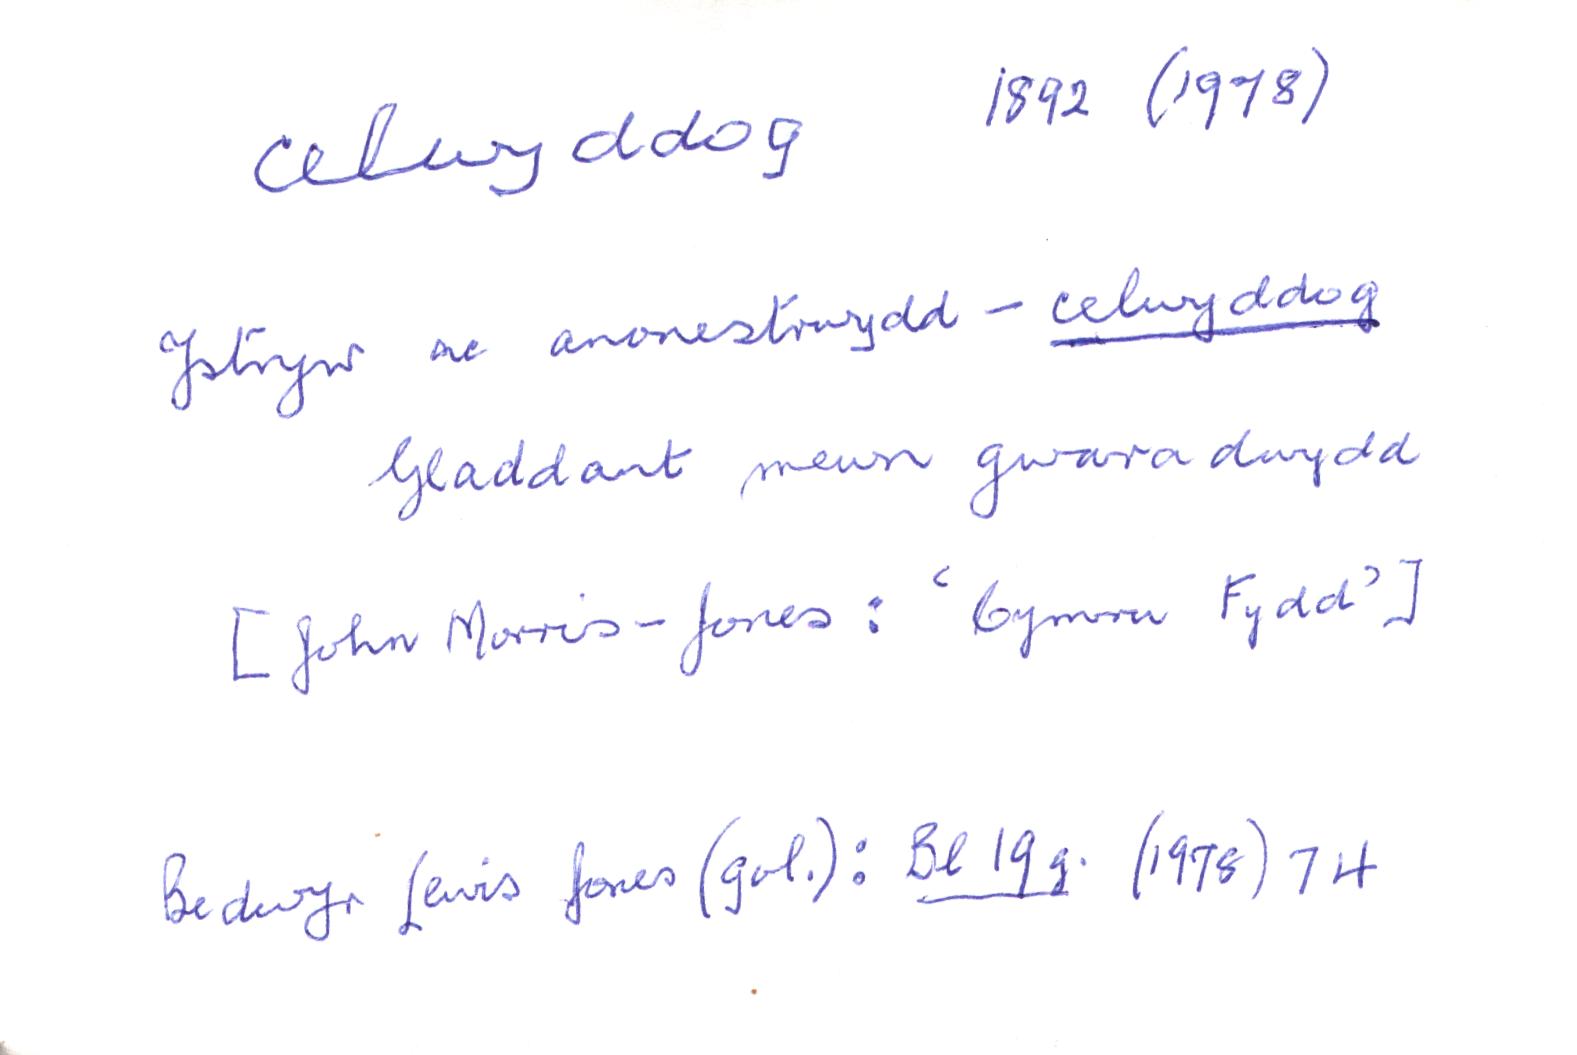 celwyddog 1892 (1978)
Ystryw ac anonestrwydd – celwyddog
Gladdant mewn gwaradwydd
[John Morris-Jones: ‘Cymru Fydd’]
Bedwyr Lewis Jones (gol.): Bl 19g. (1978) 74